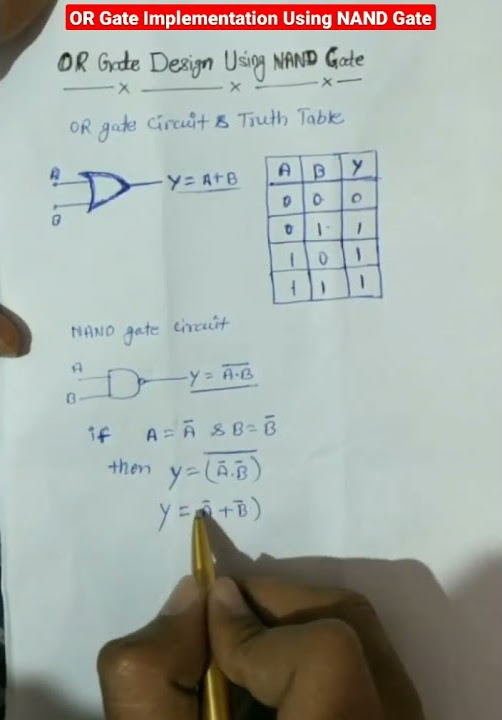 OR Gate Implementation Using NAND Gate
OR Grate Design Using NAND Gate
OR gate Circuit & Truth Table
A
B
Y = A+B
A B Y
0 0 0
0 1 1
1 0 1
1 1 1
NAND gate circuit
A
B
Y = \overline{A·B}
if A = Ā & B = B̄
then Y = \overline{(Ā.B̄)}
Y = Ā + B̄)